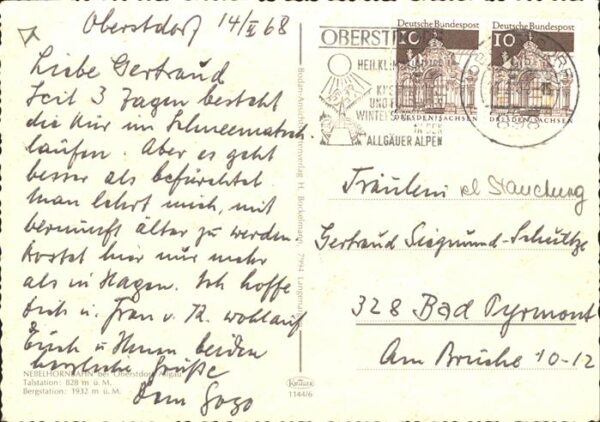 Oberstdorf 14/II 68
Liebe Gertraud
Seit 3 Tagen besteht
die Kur im Schneematsch
laufen. Aber es geht
besser als befürchtet
Man lehrt mich, mit
vernunft älter zu werden.
Kostet hier nur mehr
als in Hagen. Ich hoffe
Dich u. Frau v. R. wohlauf
Euch u. Ihnen beiden
herzliche Grüße
Dein Gogo
NEBELHORNBAHN bei Oberstdorf/Allgäu
Talstation: 828 m ü. M.
Bergstation: 1932 m ü. M.
Bodan-Ansichtskartenverlag H. Bockelmann, 7994 Langenargen
Krüger
1144/6
OBERSTDORF
HEILKLIMATISCHER
UND
WINTER
IN DEN
ALLGÄUER ALPEN
Deutsche Bundespost
10
DRESDEN/SACHSEN
Deutsche Bundespost
10
DRESDEN/SACHSEN
898
15
Fräulein
Gertraud Siegmund-Schultze
328 Bad Pyrmont
Am Bruche 10-12